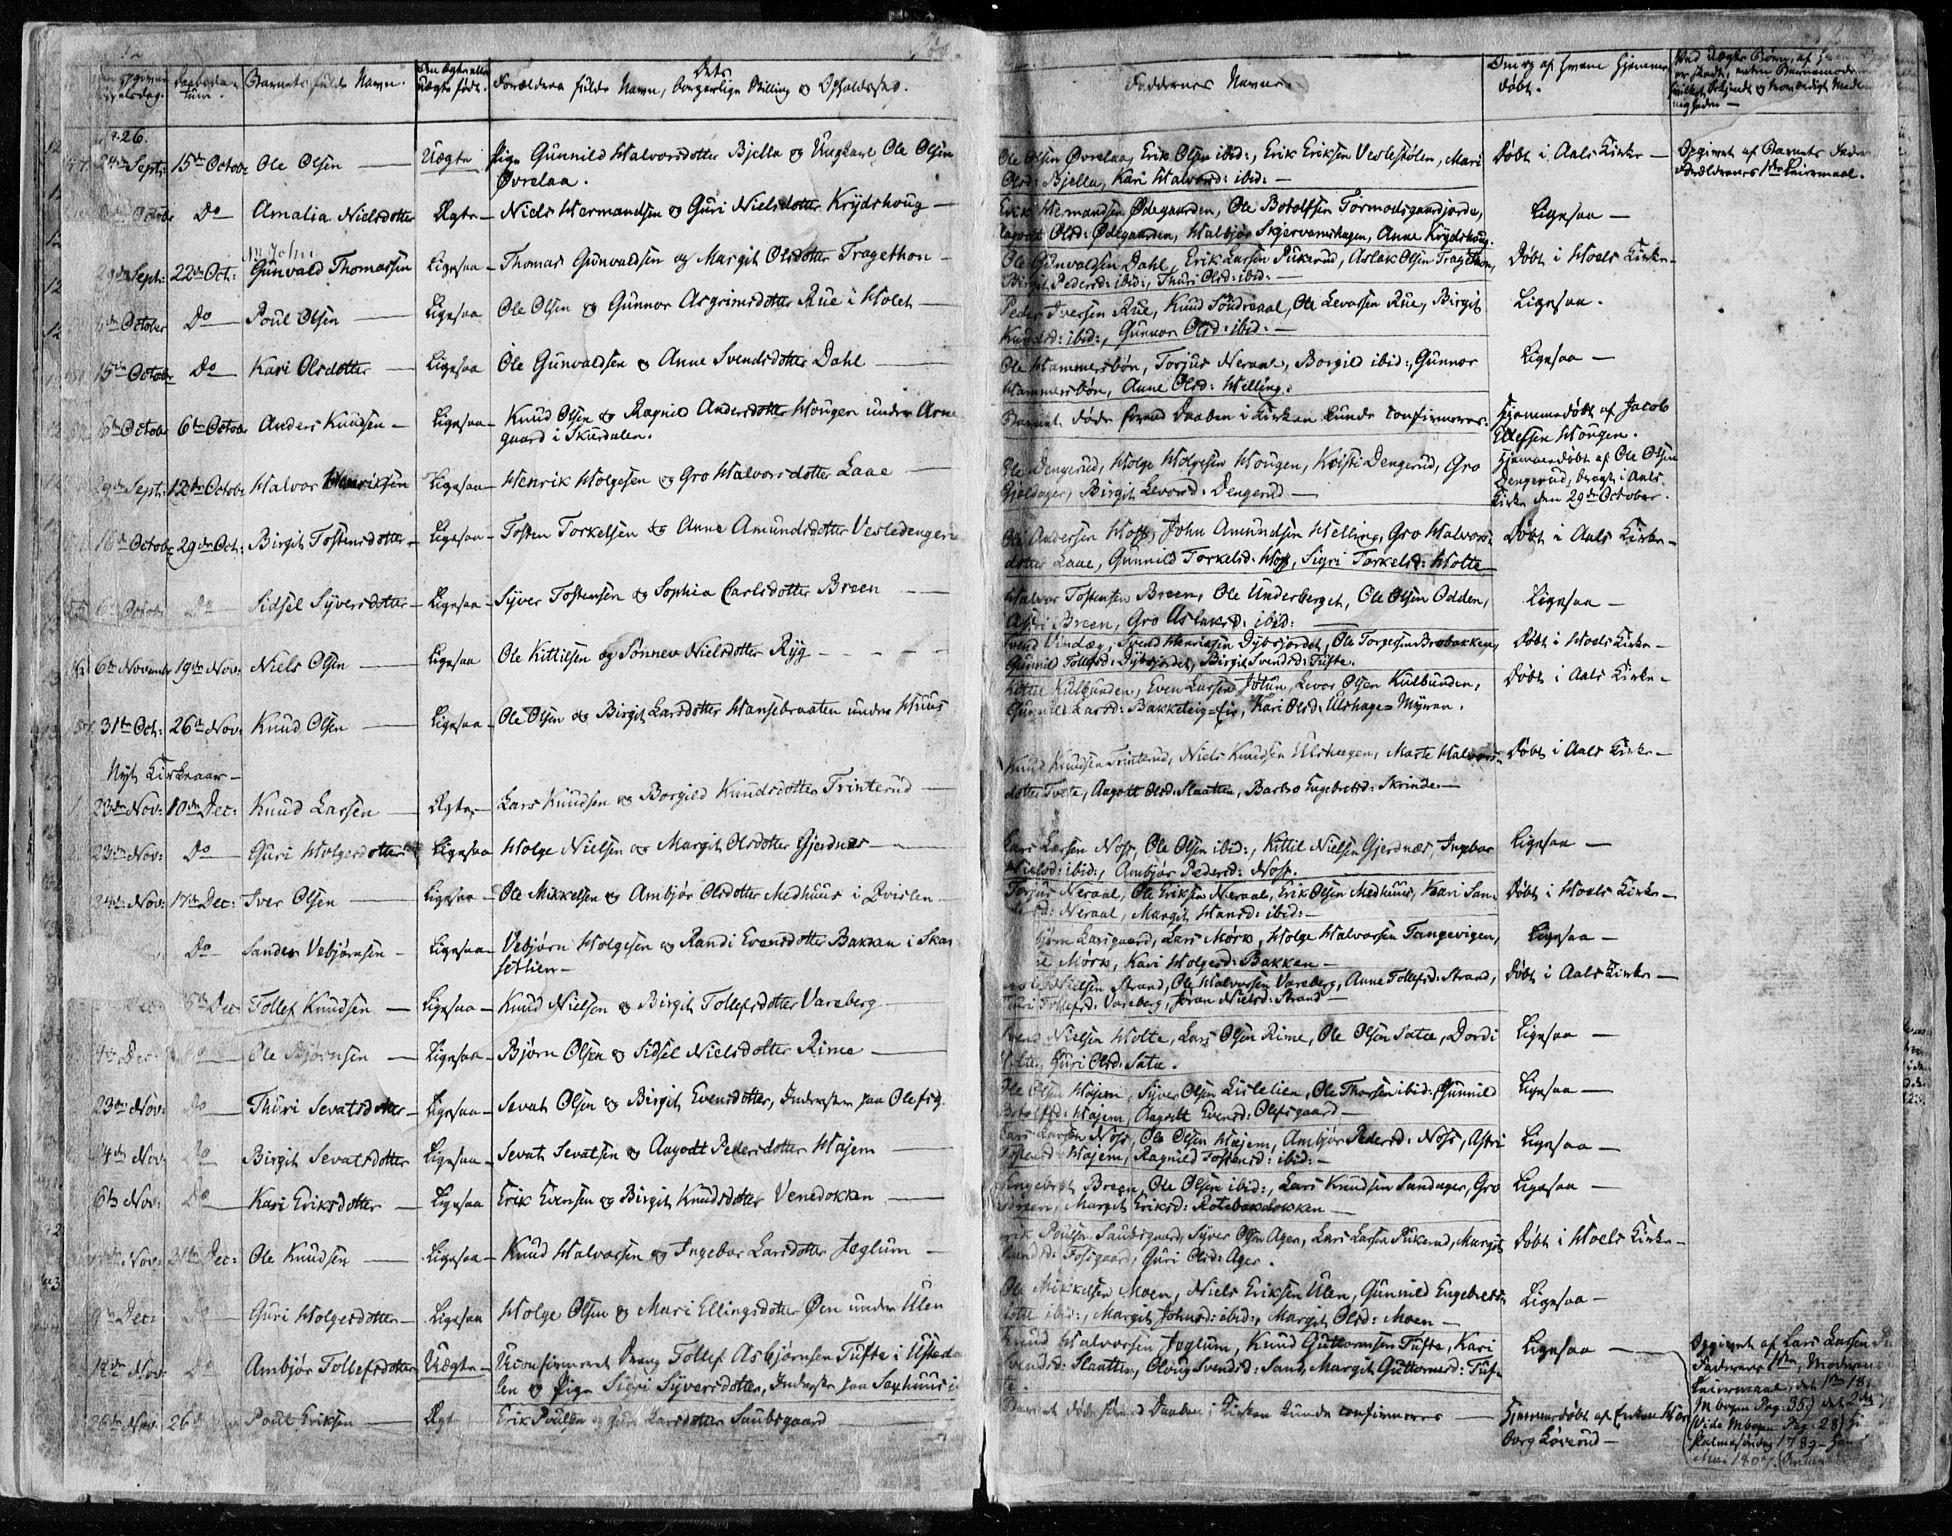 Barnets fulde Navn.
Forældrens fulde Navn, borgerlige Stilling og Opholdssted.
1826.
24de Sept: 15de Octobr Ole Olsen — Uægte Pige Gunnild Halvorsdotter Bjella og Ungkarl Ole Olsen
Øvrelaa.
Octobr Do Amalia Nielsdotter Ægte — Niels Hermandsen og Guri Nielsdotter Krydshoug —
29de Sept: 22de Oct: Gunvald Thomassen Ligesaa — Thomas Gunvaldsen og Margit Olsdotter Tragethon —
October Do Poul Olsen — Ligesaa Ole Olsen og Gunnor Asgrimsdotter Rue i Holet —
15de Octobr Do Kari Olsdotter — Ligesaa Ole Gunvaldsen og Anne Svendsdotter Dahl —
6te Octobr 6te Octobr Anders Knudsen — Ligesaa — Knud Olsen og Ragnild Andersdotter Hougen under Arne
gaard i Skurdalen.
29de Sept: 12te Octobr Halvor Henriksen Ligesaa — Henrik Holgesen og Gro Halvorsdotter Laae —
16de Octobr 29de Oct: Birgit Tostensdotter — Ligesaa — Tosten Torkelsen og Anne Amundsdotter Vesledengeru
6te Octobr Do Sidsel Syversdotter — Ligesaa — Syver Tostensen og Sophia Carlsdotter Breen —
6te November 19de Nov: Niels Olsen — Ligesaa Ole Kittilsen og Sønnev Nielsdotter Ryg —
31te Oct: 26de Nov: Knud Olsen — Ligesaa — Ole Olsen og Birgit Larsdotter Hansebraaten under Huus
Nyt Kirkeaar —
23de Nov: 10de Dec: Knud Larsen — Ægte — Lars Knudsen og Borgild Knudsdotter Trinterud —
23de Nov: Do Guri Holgesdotter Ligesaa Holge Nielsen og Margit Olsdotter Gjerdnæs —
24de Nov: 17de Dec: Iver Olsen — Ligesaa — Ole Mikkelsen og Ambjør Olsdotter Medhuus i Qvislen
Do Sander Vebjørnsen — Ligesaa — Vebjørn Holgesen og Randi Evensdotter Bakken i Skar
setlien —
Dec: Tollef Knudsen — Ligesaa — Knud Nielsen og Birgit Tollefsdotter Vareberg
4de Dec: Do Ole Bjørnsen — Ligesaa — Bjørn Olsen og Sidsel Nielsdotter Rime —
23de Nov: Do Thuri Sevatsdotter Ligesaa — Sevat Olsen og Birgit Evensdotter, Inderster paa Olefsg.
24de Nov: Do Birgit Sevatsdotter Ligesaa — Sevat Sevatsen og Aagodt Pedersdotter Hajem —
6te Nov: Do Kari Eriksdotter — Ligesaa Erik Evensen og Birgit Knudsdotter Venedokken —
Nov: 31te Dec: Ole Knudsen — Ligesaa — Knud Halvorsen og Ingebor Larsdotter Jeglum —
9de Dec: Do Guri Holgesdotter — Ligesaa Holge Olsen og Mari Ellingsdotter Øen under Ulen
12te Nov: Do Ambjør Tollefsdotter Uægte — Uconfirmeret Dreng Tollef Asbjørnsen Tufte i Usteda
len og Pige Sigri Syversdotter, Inderste paa Sexhuus i
26de Nov: 26de Poul Eriksen — Ægte Erik Poulsen og Guri Larsdotter Saubsgaard
Faddernes Navne.
Om og af hvem hjemme-
døbt.
Ole Olsen Øvrelaa, Erik Olsen ibid:, Erik Eriksen Veslestølen, Mari
Olsd: Bjella, Kari Halvorsd: ibid: —
Døbt i Aals Kirke —
Opgivet af Barnets Fader
Forældrenes 1ste Leiermaal.
Erik Hermandsen Ødegaarden, Ole Botolfsen Tormodsgaardjorde,
Aagodt Olsd: Ødegaarden, Halbjør Skjervemshagen, Anne Krydshoug.
Ligesaa —
Ole Gunvaldsen Dahl, Erik Larsen Pukerud, Aslak Olsen Tragethon,
Birgit Pedersd: ibid:, Thuri Olsd: ibid: —
Døbt i Hoels Kirke —
Peder Iversen Rue, Knud Søndreaal, Ole Levorsen Rue, Birgit
Knudsd: ibid:, Gunnor Olsd: ibid: —
Ligesaa.
Ole Hammersbøn, Torjus Neraal, Borgild ibid:, Gunnor
Hammersbøn, Anne Olsd: Helling.
Ligesaa —
Barnet døde forend Daaben i Kirken kunde confirmeres.
Hjemmedøbt af Jacob
Ellefsen Hougen.
Ole Dengerud, Holge Holgesen Hougen, Kristi Dengerud, Gro
Gjeldager, Birgit Levorsd: Dengerud —
Hjemmedøbt af Ole Olsen
Dengerud, bragt i Aals
Kirke den 29de October.
Ole Andersen Hoff, John Amundsen Helling, Gro Halvors-
dotter Laae, Gunnild Torkelsd: Hoff, Sigri Torkelsd: Holte
Døbt i Aals Kirke —
Halvor Tostensen Breen, Ole Underberget, Ole Olsen Odden,
Astri Breen, Gro Aslaksd: ibid: —
Ligesaa —
Svend Henriksen Dybsjordet, Ole Torgesen Brobakken,
Gunnild Tollefsd: Dybsjordet, Birgit Svendsd: Tufte.
Døbt i Hoels Kirke —
Kittil Kulbunden, Even Larsen Jotun, Levor Olsen Kulbunden,
Gunnild Larsd: Bakketeig=Eie, Kari Olsd: Ulshage=Myren.
Døbt i Aals Kirke —
Knud Knudsen Trinterud, Niels Knudsen Ulshagen, Marte Halvors-
dotter Tvete, Aagodt Olsd: Slaatten, Barbro Engebretsd: Skrinde —
Døbt i Aals Kirke —
Lars Larsen Noss, Ole Olsen ibid:, Kittil Nielsen Gjerdnæs, Ingebor
Nielsd: ibid:, Ambjør Pedersd: Noss.
Ligesaa —
Torjus Neraal, Ole Eriksen Neraal, Erik Olsen Medhuus, Kari San-
dersd: Neraal, Margit Hansd: ibid: —
Døbt i Hoels Kirke —
Bjørn Larsgaard, Lars Mørk, Holge Halvorsen Tangevigen,
Mørk, Kari Holgesd: Bakken —
Ligesaa —
Nielsen Strand, Ole Halvorsen Vareberg, Anne Tollefsd: Strand,
Thuri Tollefsd: Vareberg, Jøran Nielsd: Strand —
Døbt i Aals Kirke —
Svend Nielsen Holte, Lars Olsen Rime, Ole Olsen Sata, Dordi
Holte, Guri Olsd: Sata.
Ligesaa —
Ole Olsen Hajem, Syver Olsen Lislelien, Ole Thorsen ibid:, Gunnild
Botolfsd: Hajem, Aagodt Evensd: Olefsgaard —
Ligesaa —
Lars Larsen Noss, Ole Olsen Hajem, Ambjør Pedersd: Noss, Astri
Tostensd: Hajem, Ragnild Tostensd: ibid: —
Ligesaa —
Engebret Breen, Ole Olsen ibid:, Lars Knudsen Sundager, Gro
Breen, Margit Eriksd: Rotebakdokken —
Ligesaa —
Erik Poulsen Saubsgaard, Syver Olsen Ager, Lars Larsen Pukerud, Margit
Tofsgaard, Guri Olsd: Ager.
Døbt i Hoels Kirke —
Ole Mikkelsen Moen, Niels Eriksen Ulen, Gunnild Engebrets-
dotter ibid:, Margit Johnsd: ibid:, Margit Olsd: Moen —
Ligesaa —
Knud Halvorsen Jeglum, Knud Guttormsen Tufte, Kari
Svendsd: Slaatten, Oloug Svendsd: Sand, Margit Guttormsd: Tuf-
te.
Ligesaa —
Opgivet af Lars Larsen
Faderens 1ste, Moderens
Leiermaal, det 1ste 18
Mbogen Pag: 35) det 2det
(Vide Mbogen Pag: 28)
Palmesøndag 1789
Barnet døde forend Daaben i Kirken kunde confirmeres —
Hjemmedøbt af Enken
borg Løverud —